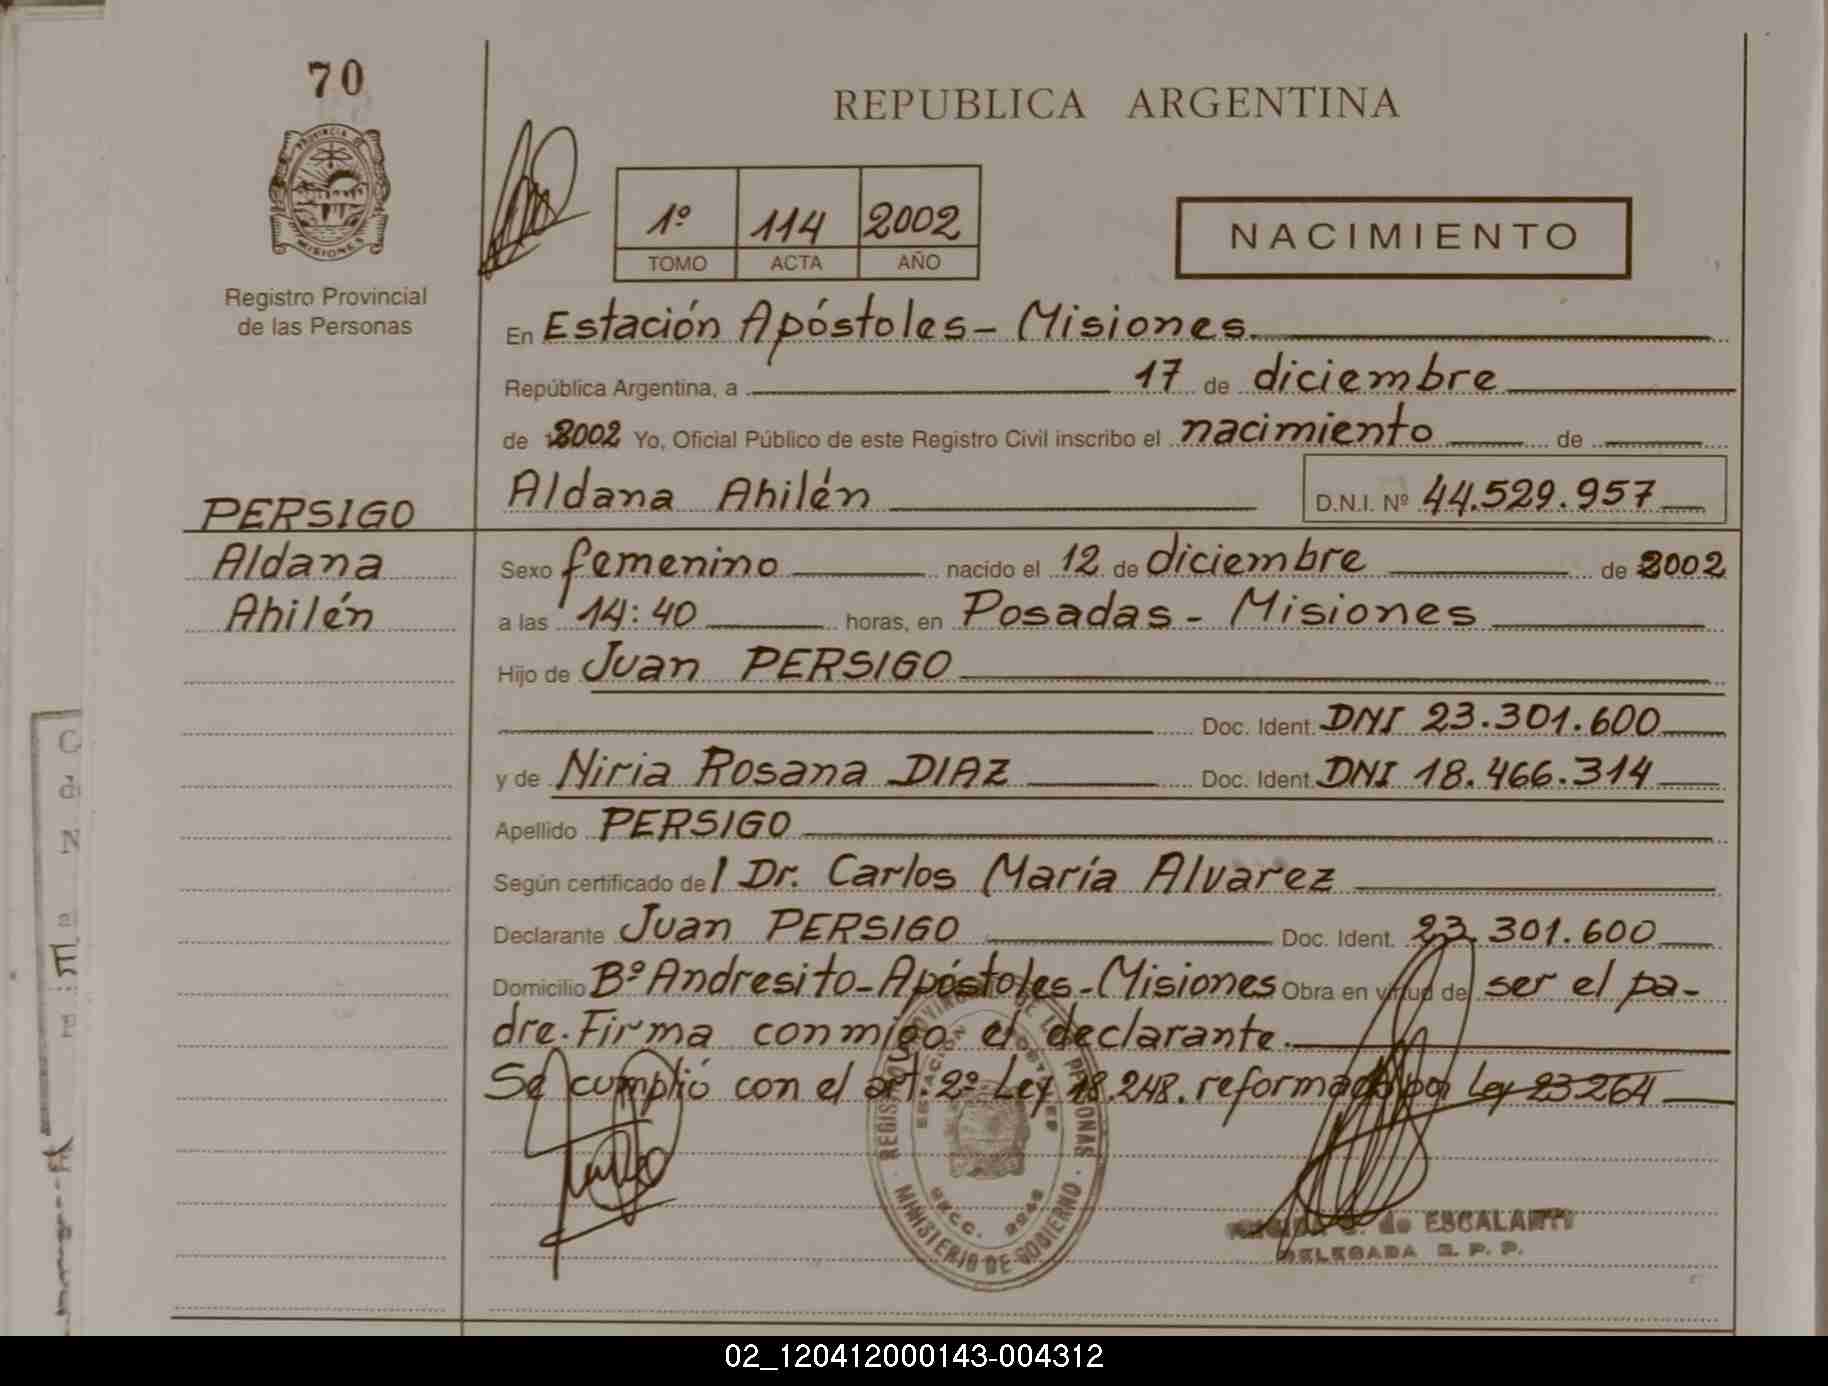 70
PROVINCIA DE
MISIONES
Registro Provincial
de las Personas
REPUBLICA ARGENTINA
1º 114 2002
TOMO ACTA AÑO
NACIMIENTO
En Estación Apóstoles - Misiones
República Argentina, a 17 de diciembre
de 2002 Yo, Oficial Público de este Registro Civil inscribo el nacimiento de
Aldana Ahilén D.N.I. Nº 44.529.957
PERSIGO
Aldana
Ahilén
Sexo femenino nacido el 12 de diciembre de 2002
a las 14:40 horas, en Posadas - Misiones
Hijo de Juan PERSIGO
Doc. Ident. DNI 23.301.600
y de Niria Rosana DIAZ Doc. Ident. DNI 18.466.314
Apellido PERSIGO
Según certificado de l Dr. Carlos María Alvarez
Declarante Juan PERSIGO Doc. Ident. 23.301.600
Domicilio Bº Andresito - Apóstoles - Misiones Obra en virtud de ser el pa-
dre. Firma conmigo el declarante.
Se cumplió con el art. 2º Ley 18.248. reformado por Ley 23264
REGISTRO PROVINCIAL DE LAS PERSONAS
MINISTERIO DE GOBIERNO
ESTACION APOSTOLES
SECC.
de ESCALANTE
DELEGADA R. P. P.
02_120412000143-004312